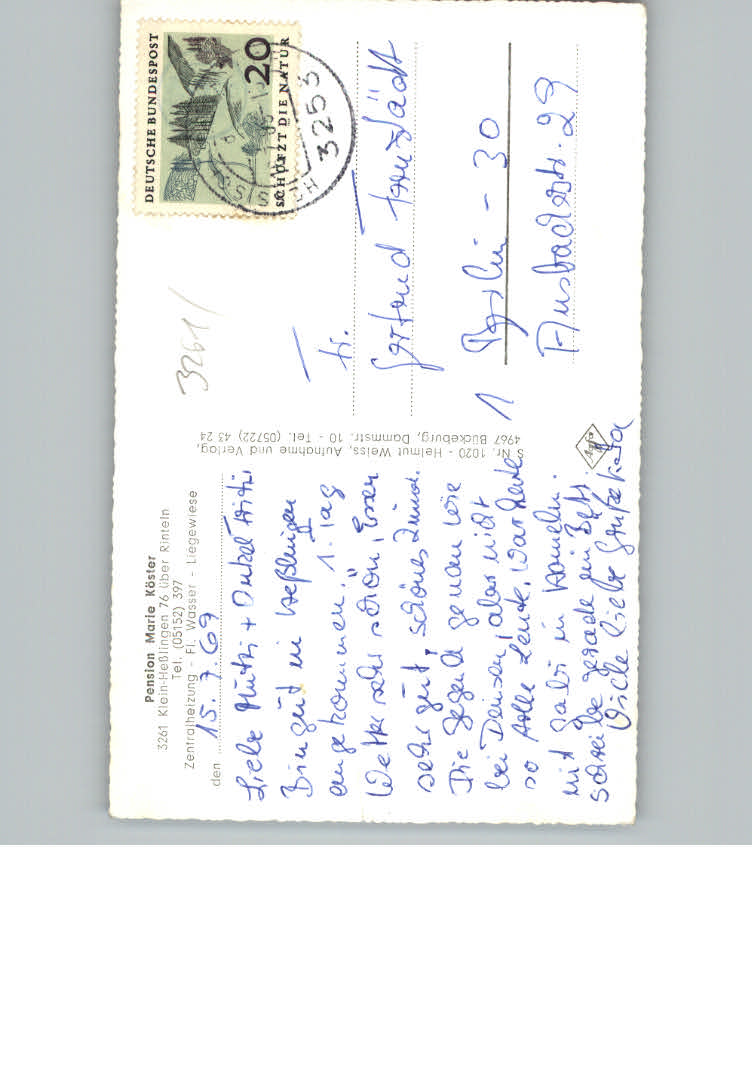 Pension Marie Köster
3261 Klein-Heßlingen 76 über Rinteln
Tel. (05152) 397
Zentralheizung - Fl. Wasser - Liegewiese
den 15. 7. 69
Liebe Mutti + Onkel
Bin gut in Heßlingen
angekommen. 1. Tag
Wetter sehr schön, Essen
sehr gut, schönes Zimmer.
Die Gegend genau wie
bei Deinsen, aber nicht
so tolle Leute. War heute
mit Gabi in Hameln.
schreibe gerade im Bett.
Viele liebe Grüße
S Nr. 1020 - Helmut Weiss, Aufnahme und Verlag,
4967 Bückeburg, Dammstr. 10 - Tel. (05722) 43 24
Agfa
3261/
DEUTSCHE BUNDESPOST
20
SCHÜTZT DIE NATUR
3253
Fr.
Gertrud
1 Berlin - 30
Ansbacherstr. 29